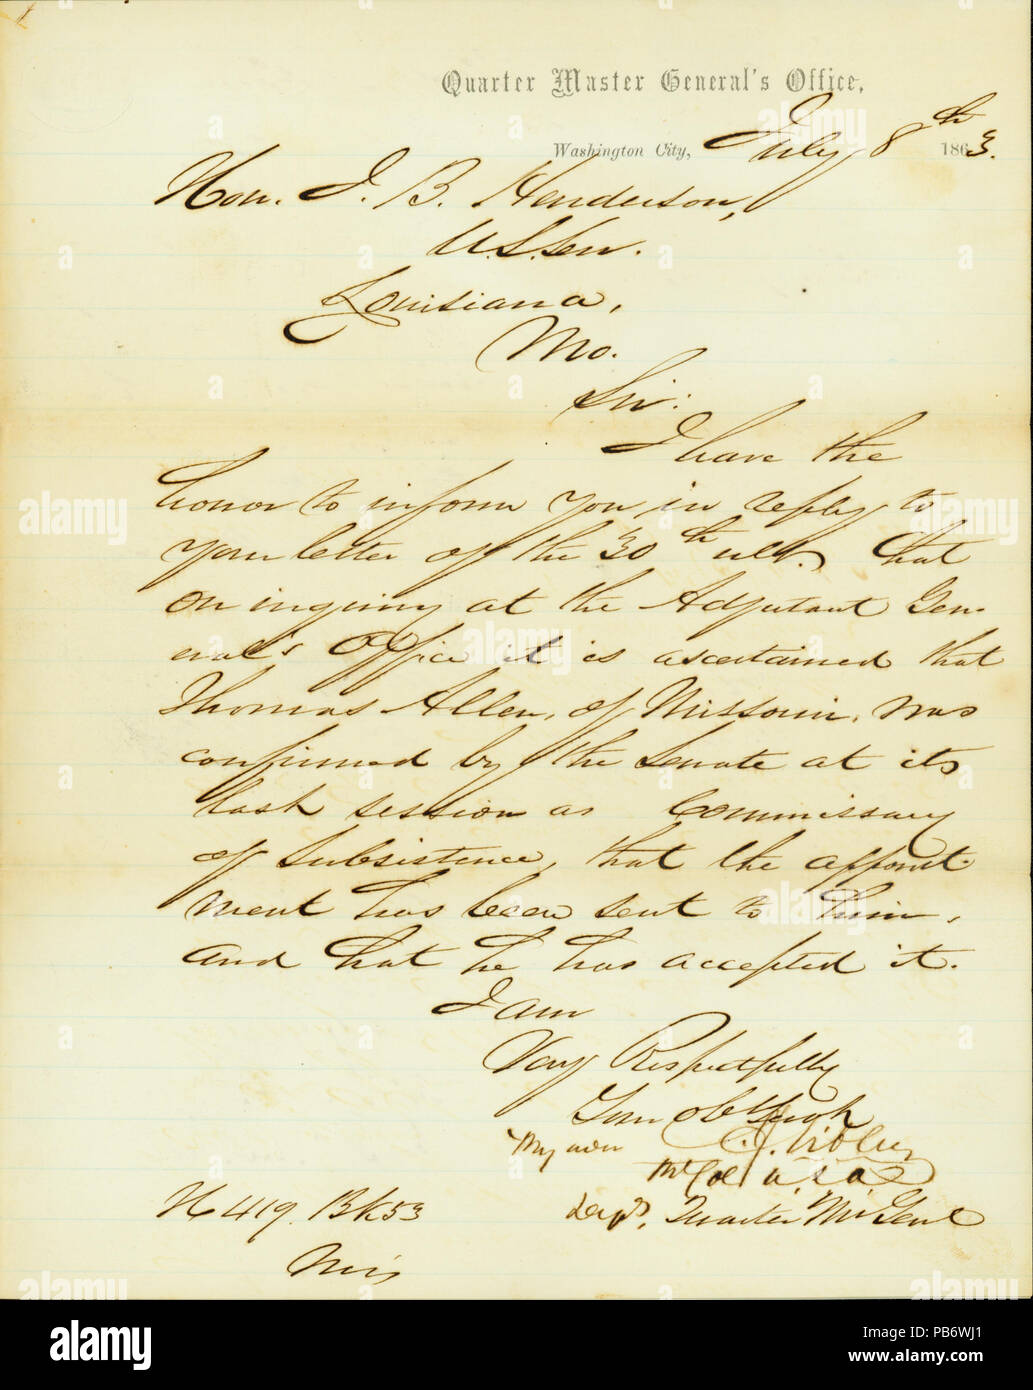 Quarter Master General's Office,
Washington City, July 8th 1863.
Hon. J. B. Henderson,
U.S. Sen.
Louisiana,
Mo.
Sir:
I have the
honor to inform you in reply to
your letter of the 30th ult. that
on inquiry at the Adjutant Gen-
eral's Office it is ascertained that
Thomas Allen, of Missouri, was
confirmed by the Senate at its
last session as Commissary
of Subsistence, that the appoint-
ment has been sent to him,
and that he has accepted it.
I am
Very Respectfully
Your obt
By order
Col U.S.A.
Dep. Quarter Mr Genl
H 419. Bk 53
alamy
Image ID: PB6WJ1
www.alamy.com